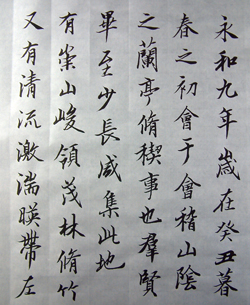 永和九年歲在癸丑暮
春之初會于會稽山陰
之蘭亭脩稧事也羣賢
畢至少長咸集此地
有崇山峻領茂林脩竹
又有清流激湍暎帶左